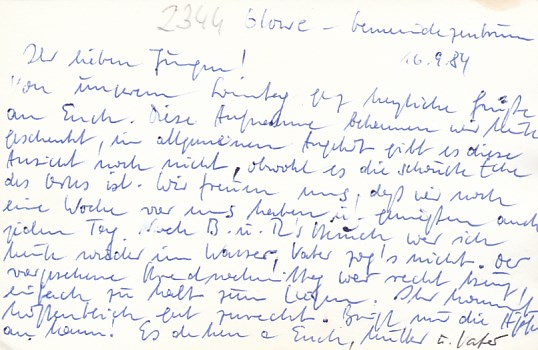 2344 Glowe – Gemeindezentrum
Ihr lieben Jungen! 16.9.84
Von unserem Sonntag ganz herzliche Grüße
an Euch. Diese Aufnahme bekamen wir heute
geschenkt, im allgemeinen Angebot gibt es diese
Ansicht noch nicht, obwohl es die schönste Ecke
des Ortes ist. Wir freuen uns, daß wir noch
eine Woche vor uns haben u. genießen auch
jeden Tag. Nach B. u. Besuch war ich
heute wieder im Wasser, Vater zog's nicht. Der
vorgesehene war recht
einfach zu kalt zum Liegen. Ihr kommt
hoffentlich gut zurecht. und die
an Es denken a Euch, Mutter u. Vater